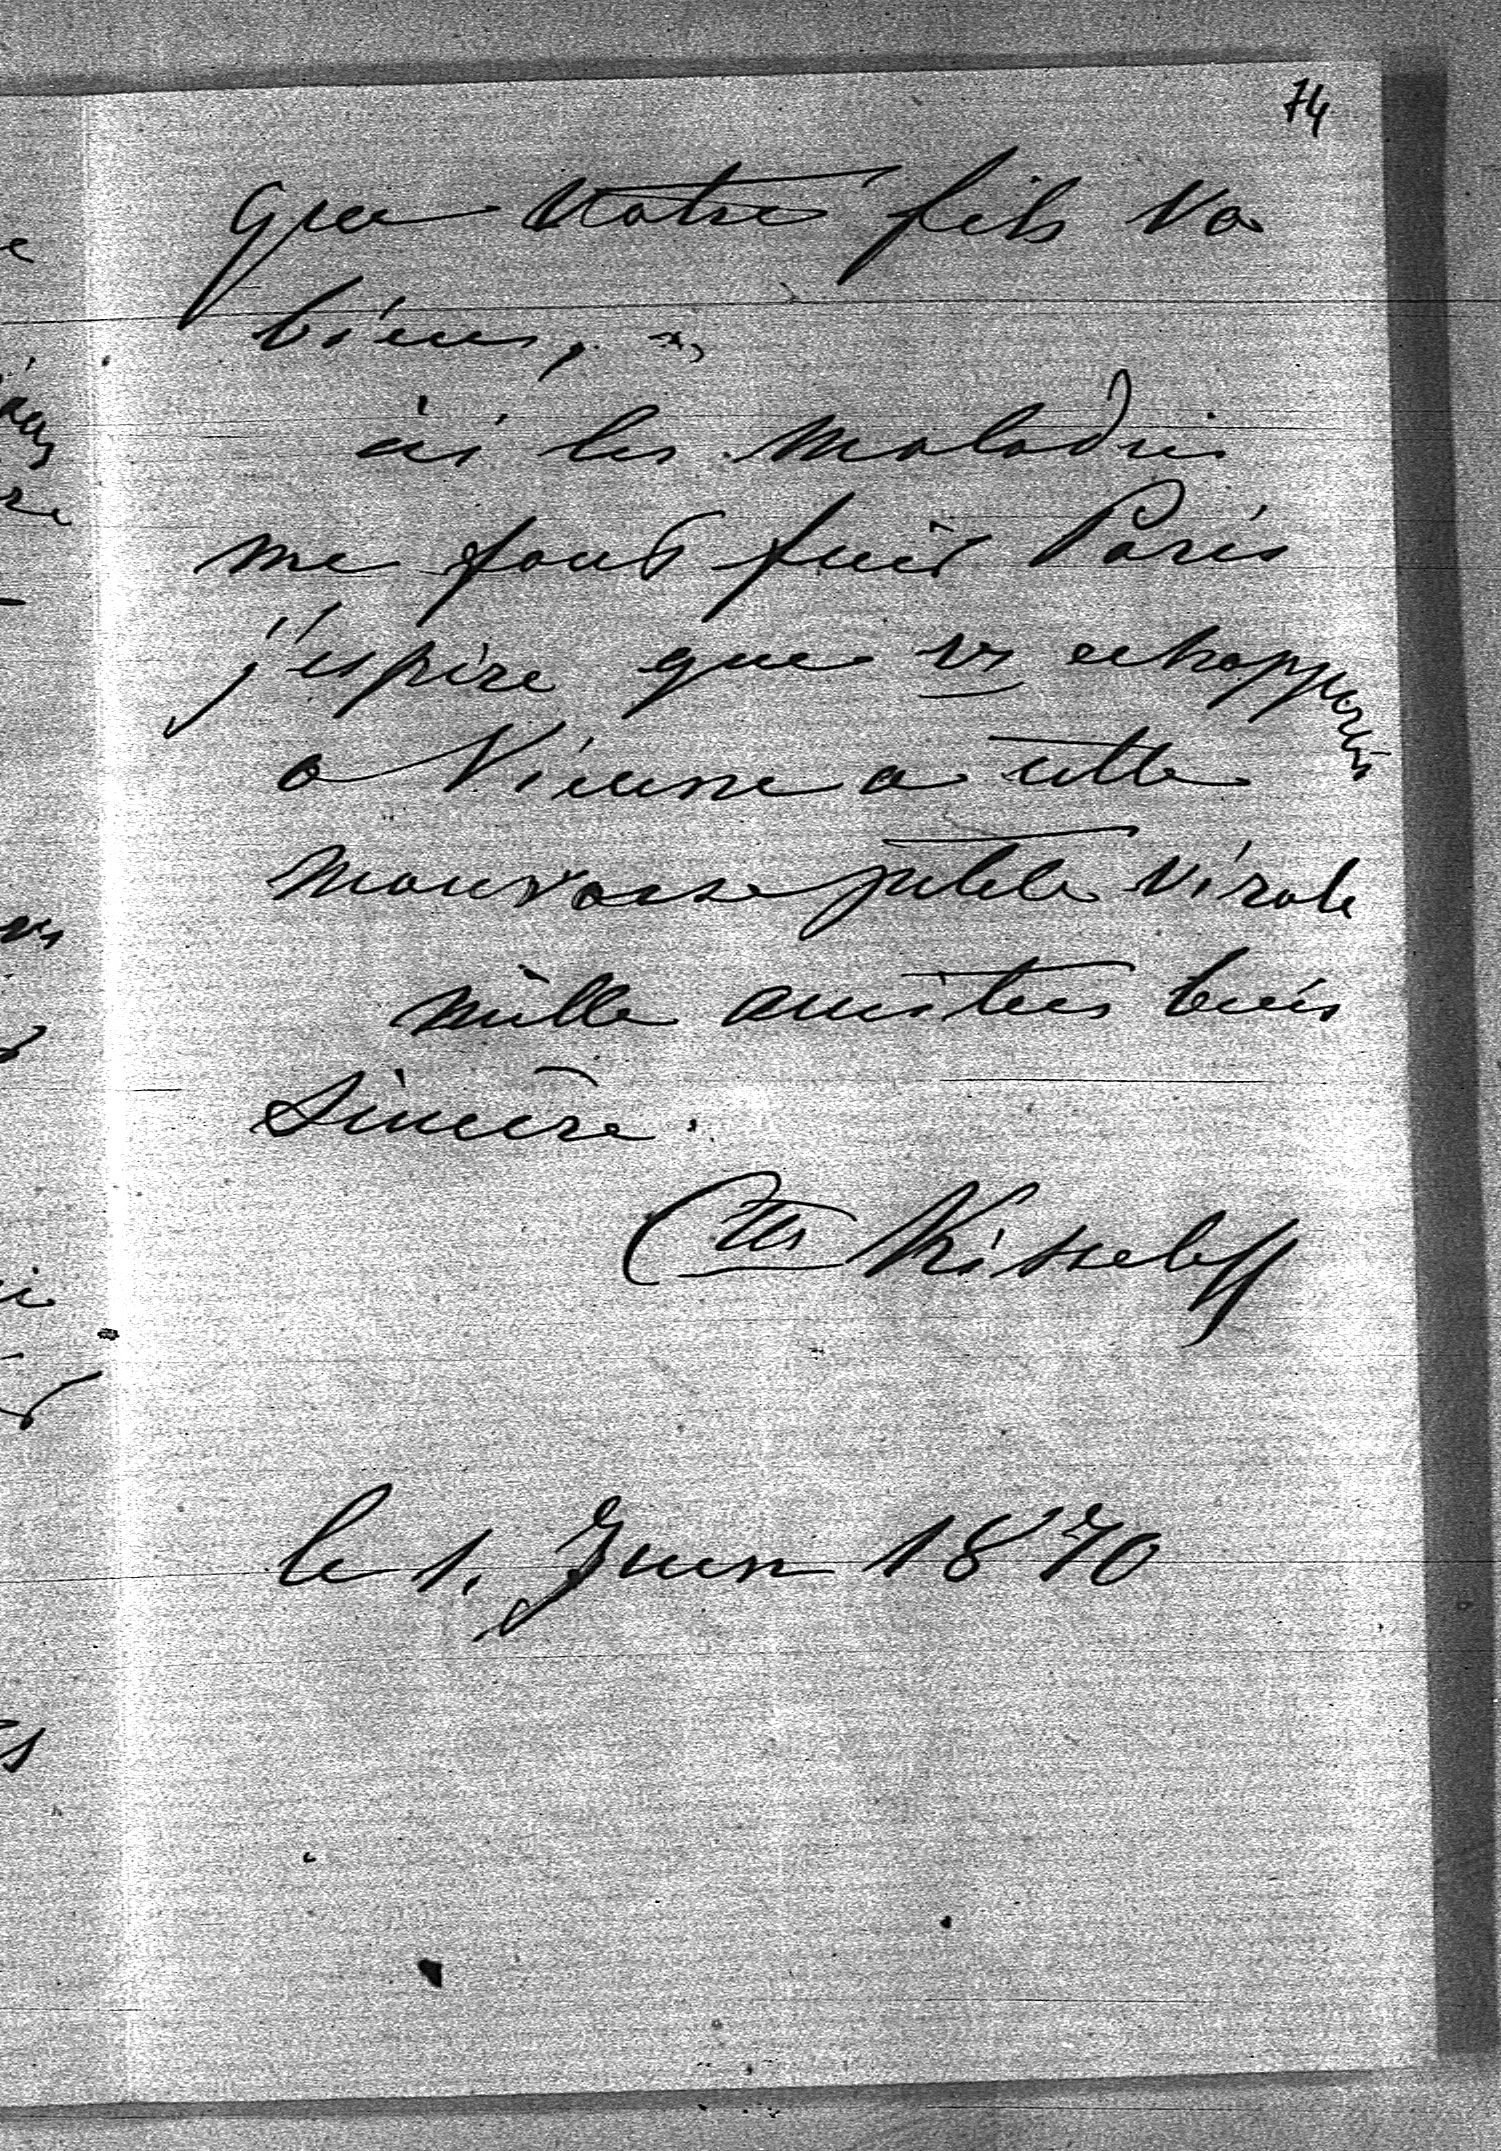 74
que votre fils va
bien,.
ici les maladies
me font fuir Paris
j'espère que vs echapperés
a Vienne a cette
mauvaise petite vérole
mille amitiés bien
sincère.
Ctsse Kisseleff
le 1. Juin 1870